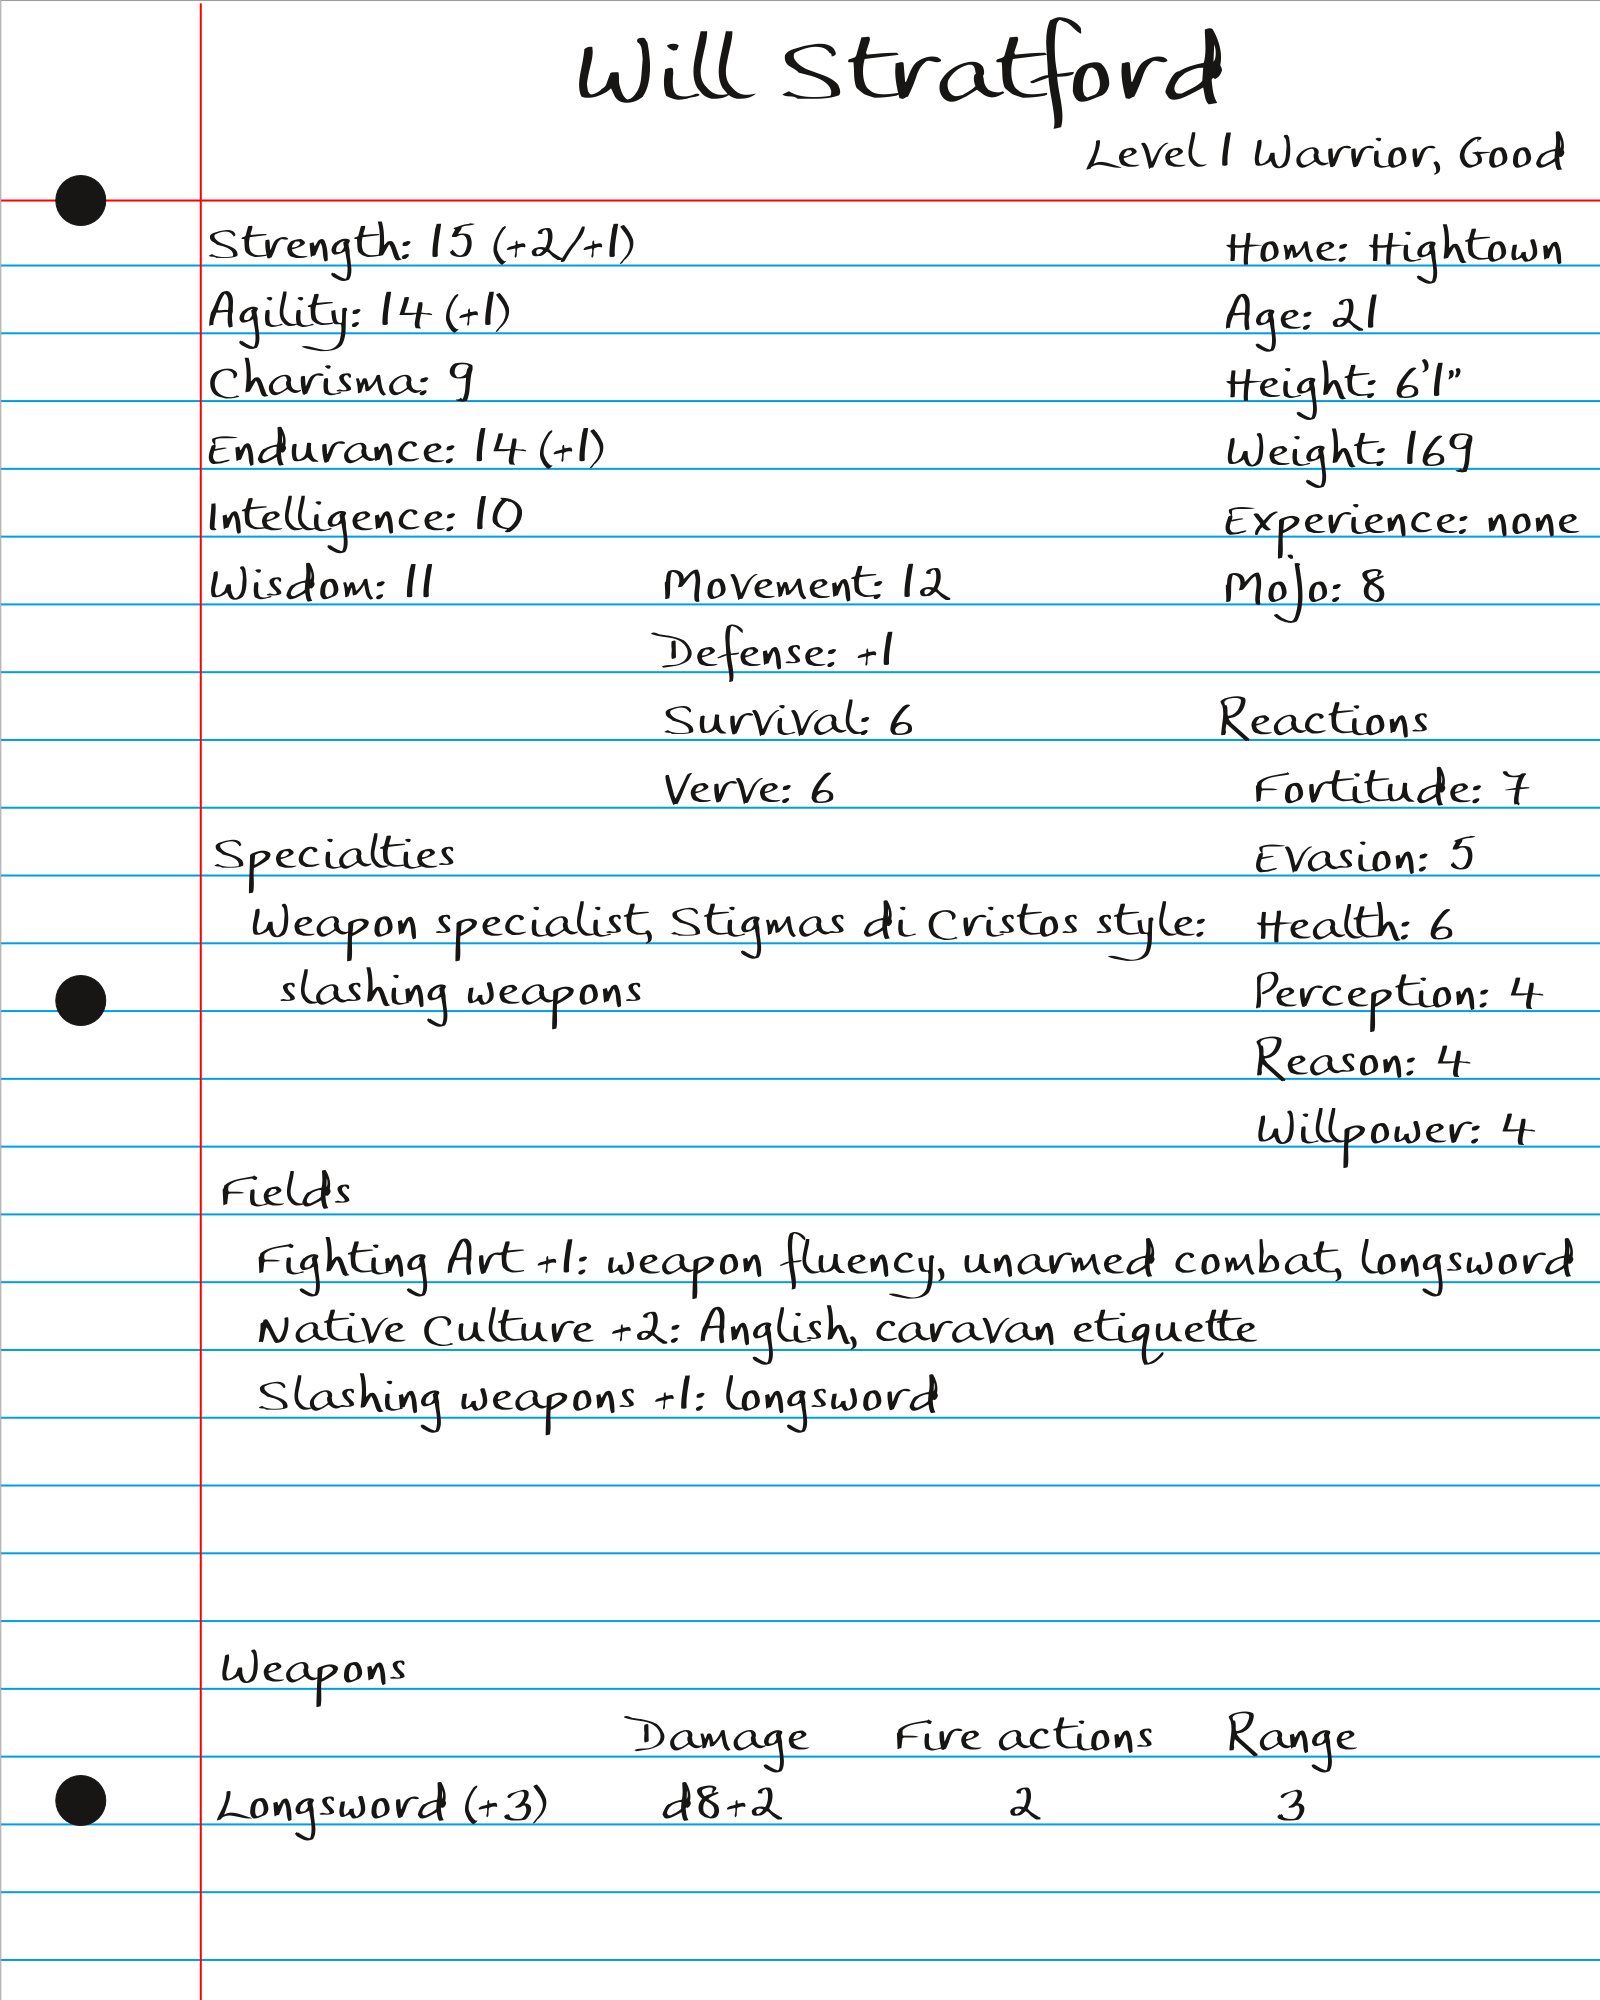 Will Stratford
Level 1 Warrior, Good
Strength: 15 (+2/+1)
Home: Hightown
Agility: 14 (+1)
Age: 21
Charisma: 9
Height: 6'1"
Endurance: 14 (+1)
Weight: 169
Intelligence: 10
Experience: none
Wisdom: 11
Movement: 12
Mojo: 8
Defense: +1
Survival: 6
Reactions
Verve: 6
Fortitude: 7
Specialties
Evasion: 5
Weapon specialist, Stigmas di Cristos style:
Health: 6
slashing weapons
Perception: 4
Reason: 4
Willpower: 4
Fields
Fighting Art +1: weapon fluency, unarmed combat, longsword
Native Culture +2: Anglish, caravan etiquette
Slashing weapons +1: longsword
Weapons
Damage Fire actions Range
Longsword (+3) d8+2 2 3